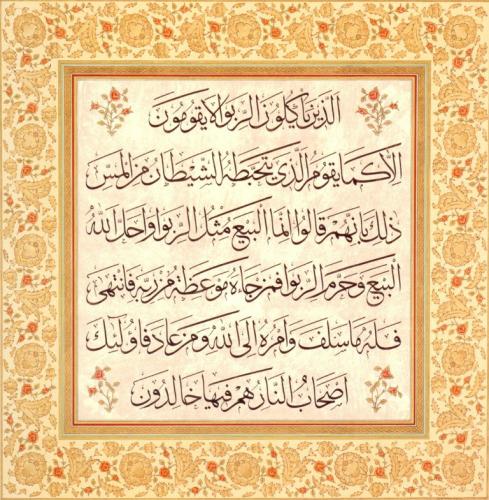 الذين يأكلون الربوا لا يقومون
إلا كما يقوم الذي يتخبطه الشيطان من المس
ذلك بأنهم قالوا إنما البيع مثل الربوا وأحل الله
البيع وحرم الربوا فمن جاءه موعظة من ربه فانتهى
فله ما سلف وأمره إلى الله ومن عاد فأولئك
أصحاب النار هم فيها خالدون